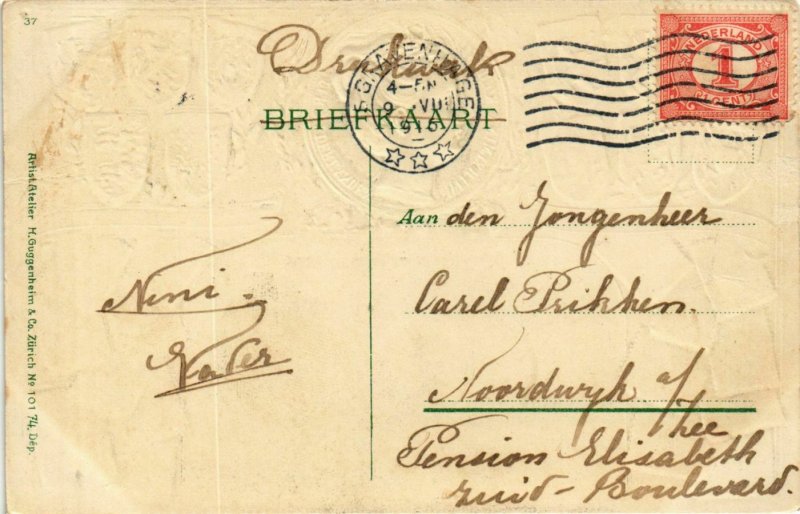 37
Drukwerk
'S GRAVENHAGE
4-5N
9 VII
1910
NEDERLAND
1
CENT
BRIEFKAART
Aan den Jongenheer
Carel Prikken.
Noordwyk a/
Zee
Pension Elisabeth
Zuid-Boulevard.
Nini.
Vader
Artist. Atelier H. Guggenheim & Co. Zürich No 101 74, Dép.